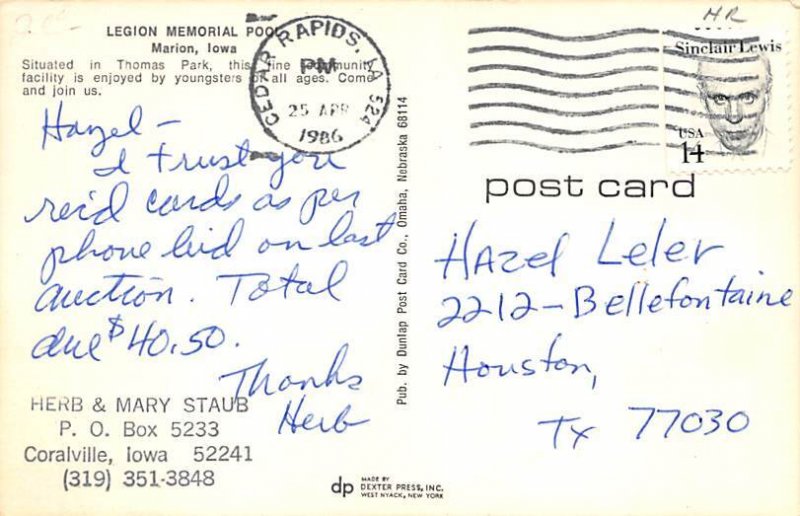 LEGION MEMORIAL POOL
Marion, Iowa
Situated in Thomas Park, this fine community
facility is enjoyed by youngsters of all ages. Come
and join us.
CEDAR RAPIDS, IA 524
PM
25 APR
1986
HR
Sinclair Lewis
USA
14
post card
Hazel –
I trust you
rec'd cards as per
phone bid on last
auction. Total
due $40.50.
Thanks
Herb
HERB & MARY STAUB
P. O. Box 5233
Coralville, Iowa 52241
(319) 351-3848
Pub. by Dunlap Post Card Co., Omaha, Nebraska 68114
Hazel Leler
2212–Bellefontaine
Houston,
Tx 77030
dp
MADE BY
DEXTER PRESS, INC.
WEST NYACK, NEW YORK